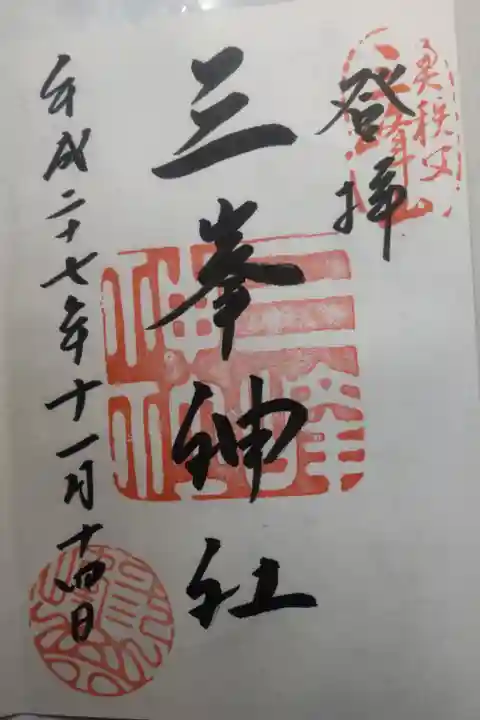 奥秩父
三峯山
登拝
三峯神社
平成二十七年十一月十四日